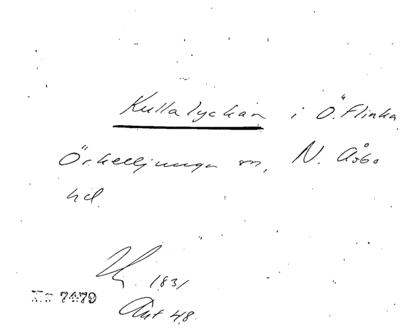 Kullalyckan i Ö. Flinka
Örkelljunga sn, N. Åsbo
hd.
1831
No 7479
Akt 48